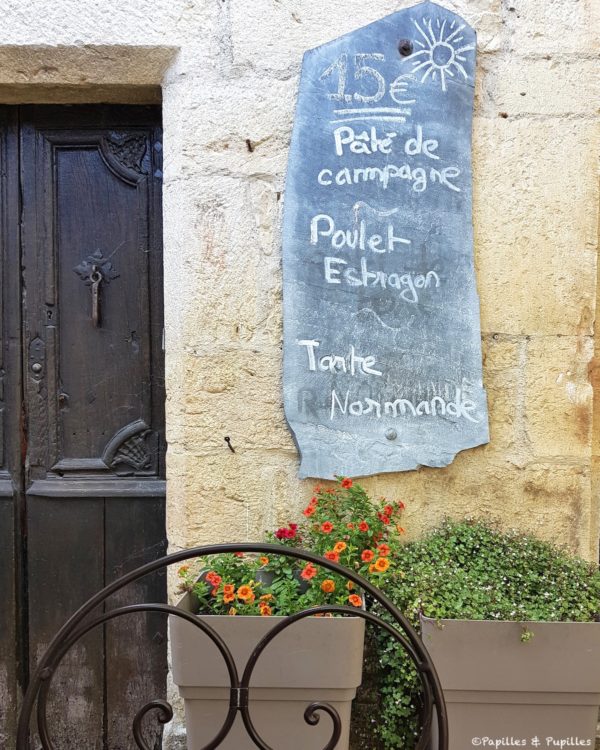 15 €
Pâté de
campagne
Poulet
Estragon
Tarte
Normande
©Papilles & Pupilles